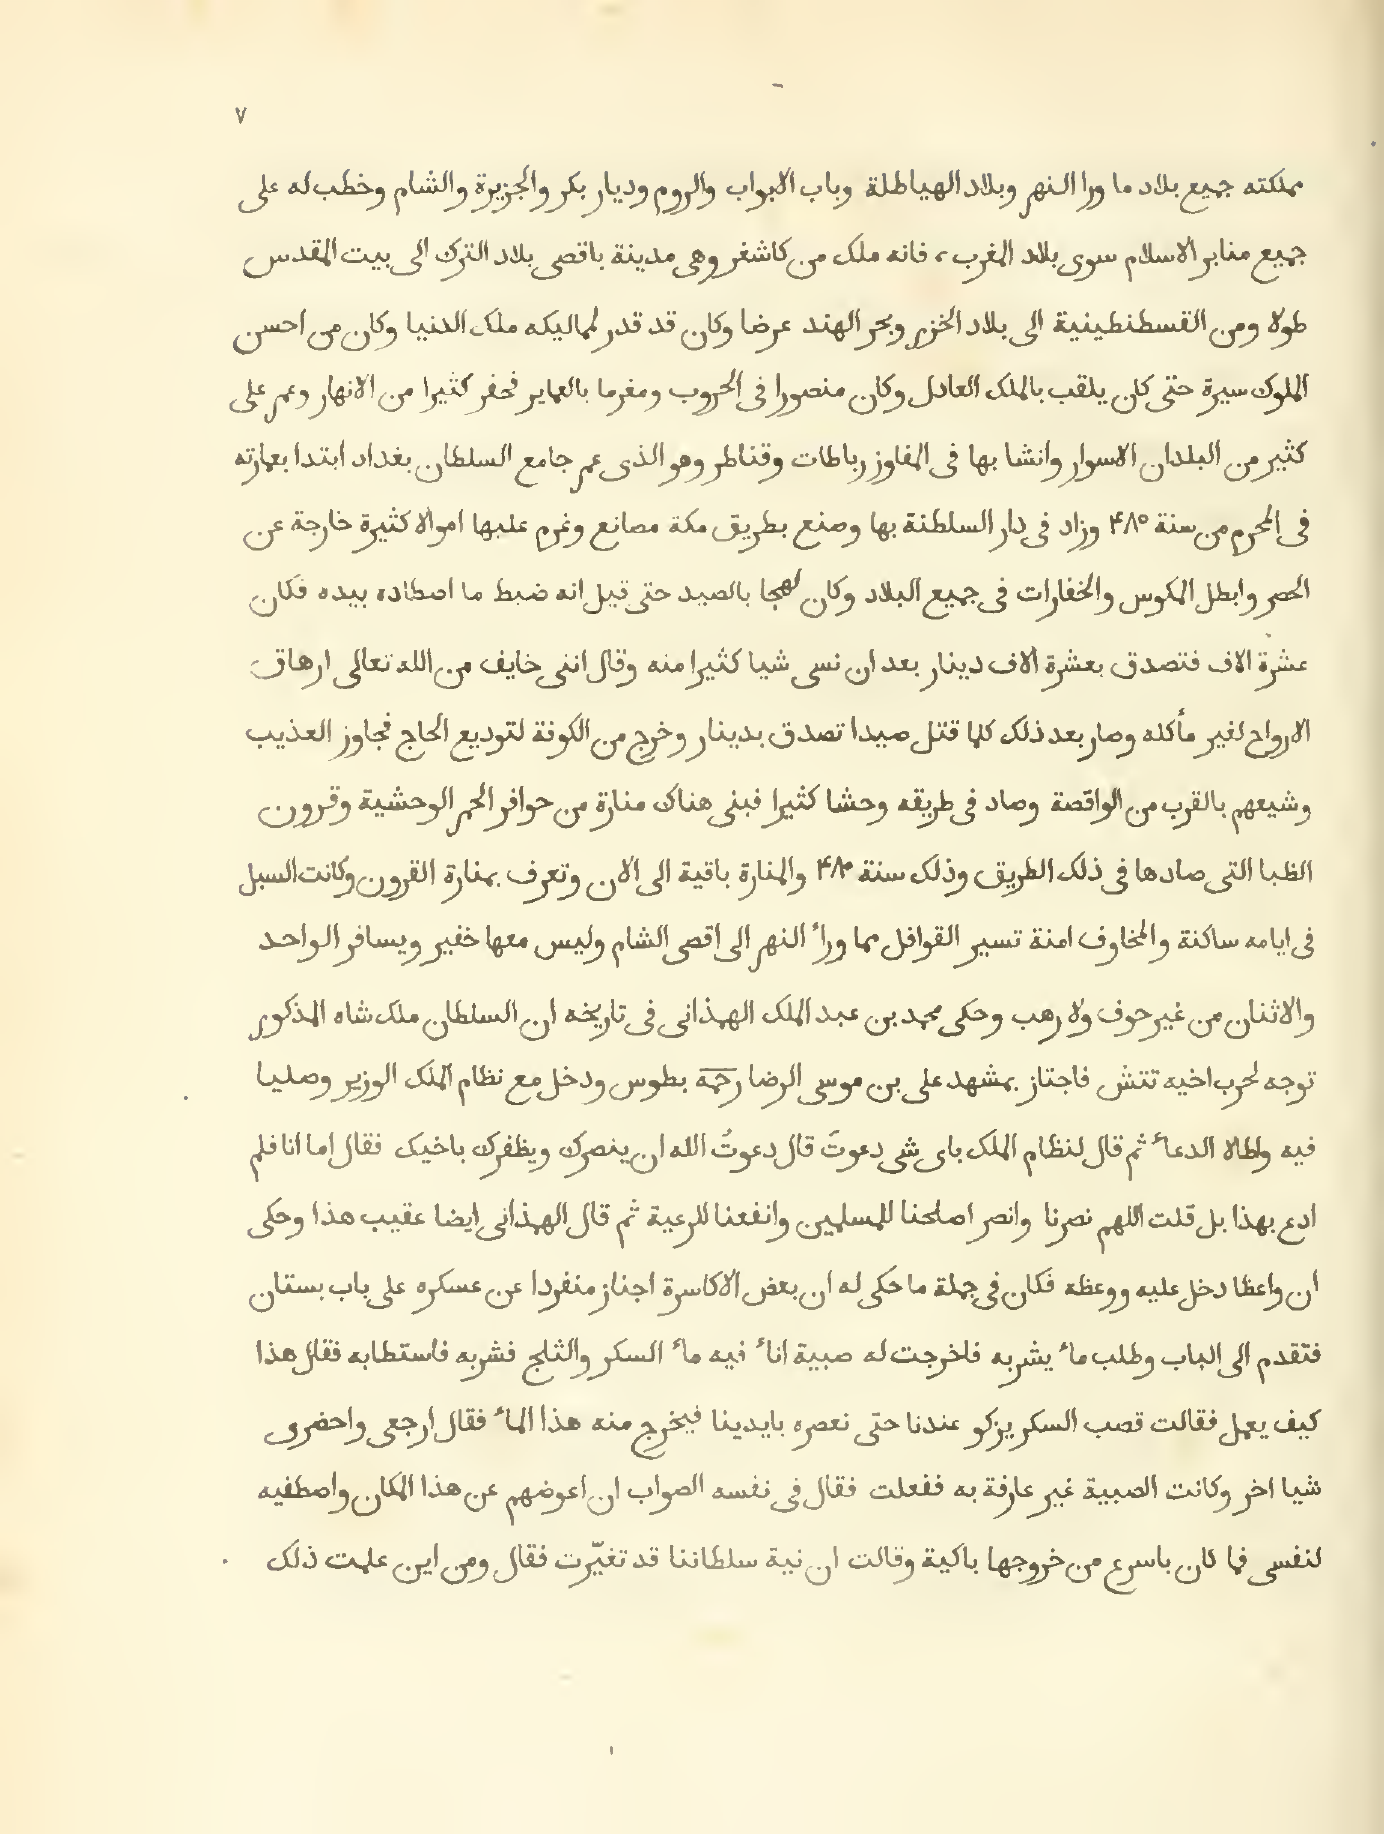 ٧
مملكته جميع بلاد ما ورا النهر وبلاد الهياطلة وباب الابواب والروم وديار بكر والجزيرة والشام وخطب له على
جميع منابر الاسلام سوى بلاد المغرب، فانه ملك من كاشغر وهى مدينة باقصى بلاد الترك الى بيت المقدس
طولا ومن القسطنطينية الى بلاد الخزر وبحر الهند عرضا وكان قد قدر لمماليكه ملك الدنيا وكان من احسن
الملوك سيرة حتى كان يلقب بالملك العادل وكان منصورا فى الحروب ومغرما بالعماير فحفر كثيرا من الانهار وعمر على
كثير من البلدان الاسوار وانشا بها فى المفاوز رباطات وقناطر وهو الذى عمر جامع السلطان ببغداد ابتدا بعمارته
فى المحرم من سنة ۴۸۵ وزاد فى دار السلطنة بها وصنع بطريق مكة مصانع وغرم عليها اموالا كثيرة خارجة عن
الحصر وابطل المكوس والخفارات فى جميع البلاد وكان لهجا بالصيد حتى قيل انه ضبط ما اصطاده بيده فكان
عشرة الاف فتصدق بعشرة الاف دينار بعد ان نسى شيا كثيرا منه وقال اننى خايف من الله تعالى ارهاق
الارواح لغير مأكله وصار بعد ذلك كلما قتل صيدا تصدق بدينار وخرج من الكوفة لتوديع الحاج فجاوز العذيب
وشيعهم بالقرب من الواقصة وصاد فى طريقه وحشا كثيرا فبنى هناك منارة من حوافر الحمر الوحشية وقرون
الظبا التى صادها فى ذلك الطريق وذلك سنة ۴۸۰ والمنارة باقية الى الان وتعرف بمنارة القرون وكانت السبل
فى ايامه ساكنة والمخاوف امنة تسير القوافل مما وراء النهر الى اقصى الشام وليس معها خفير ويسافر الواحد
والاثنان من غير حوف ولا رهب وحكى محمد بن عبد الملك الهمذانى فى تاريخه ان السلطان ملك شاه المذكور
توجه لحرب اخيه تتش فاجتاز بمشهد على بن موسى الرضا رحمه بطوس ودخل مع نظام الملك الوزير وصليا
فيه واطالا الدعاء ثم قال لنظام الملك باى شى دعوتَ قال دعوتُ الله ان ينصرك ويظفرك باخيك فقال اما انا فلم
ادع بهذا بل قلت اللهم نصرنا وانصر اصلحنا للمسلمين وانفعنا للرعية ثم قال الهمذانى ايضا عقيب هذا وحكى
ان واعظا دخل عليه ووعظه فكان فى جملة ما حكى له ان بعض الاكاسرة اجتاز منفردا عن عسكره على باب بستان
فتقدم الى الباب وطلب ماء يشربه فاخرجت له صبية اناء فيه ماء السكر والثلج فشربه فاستطابه فقال هذا
كيف يعمل فقالت قصب السكر يزكو عندنا حتى نعصره بايدينا فيخرج منه هذا الماء فقال ارجعى واحضرى
شيا اخر وكانت الصبية غير عارفة به ففعلت فقال فى نفسه الصواب ان اعوضهم عن هذا المكان واصطفيه
لنفسى فما كان باسرع من خروجها باكية وقالت ان نية سلطاننا قد تغيّرت فقال ومن اين علمت ذلك